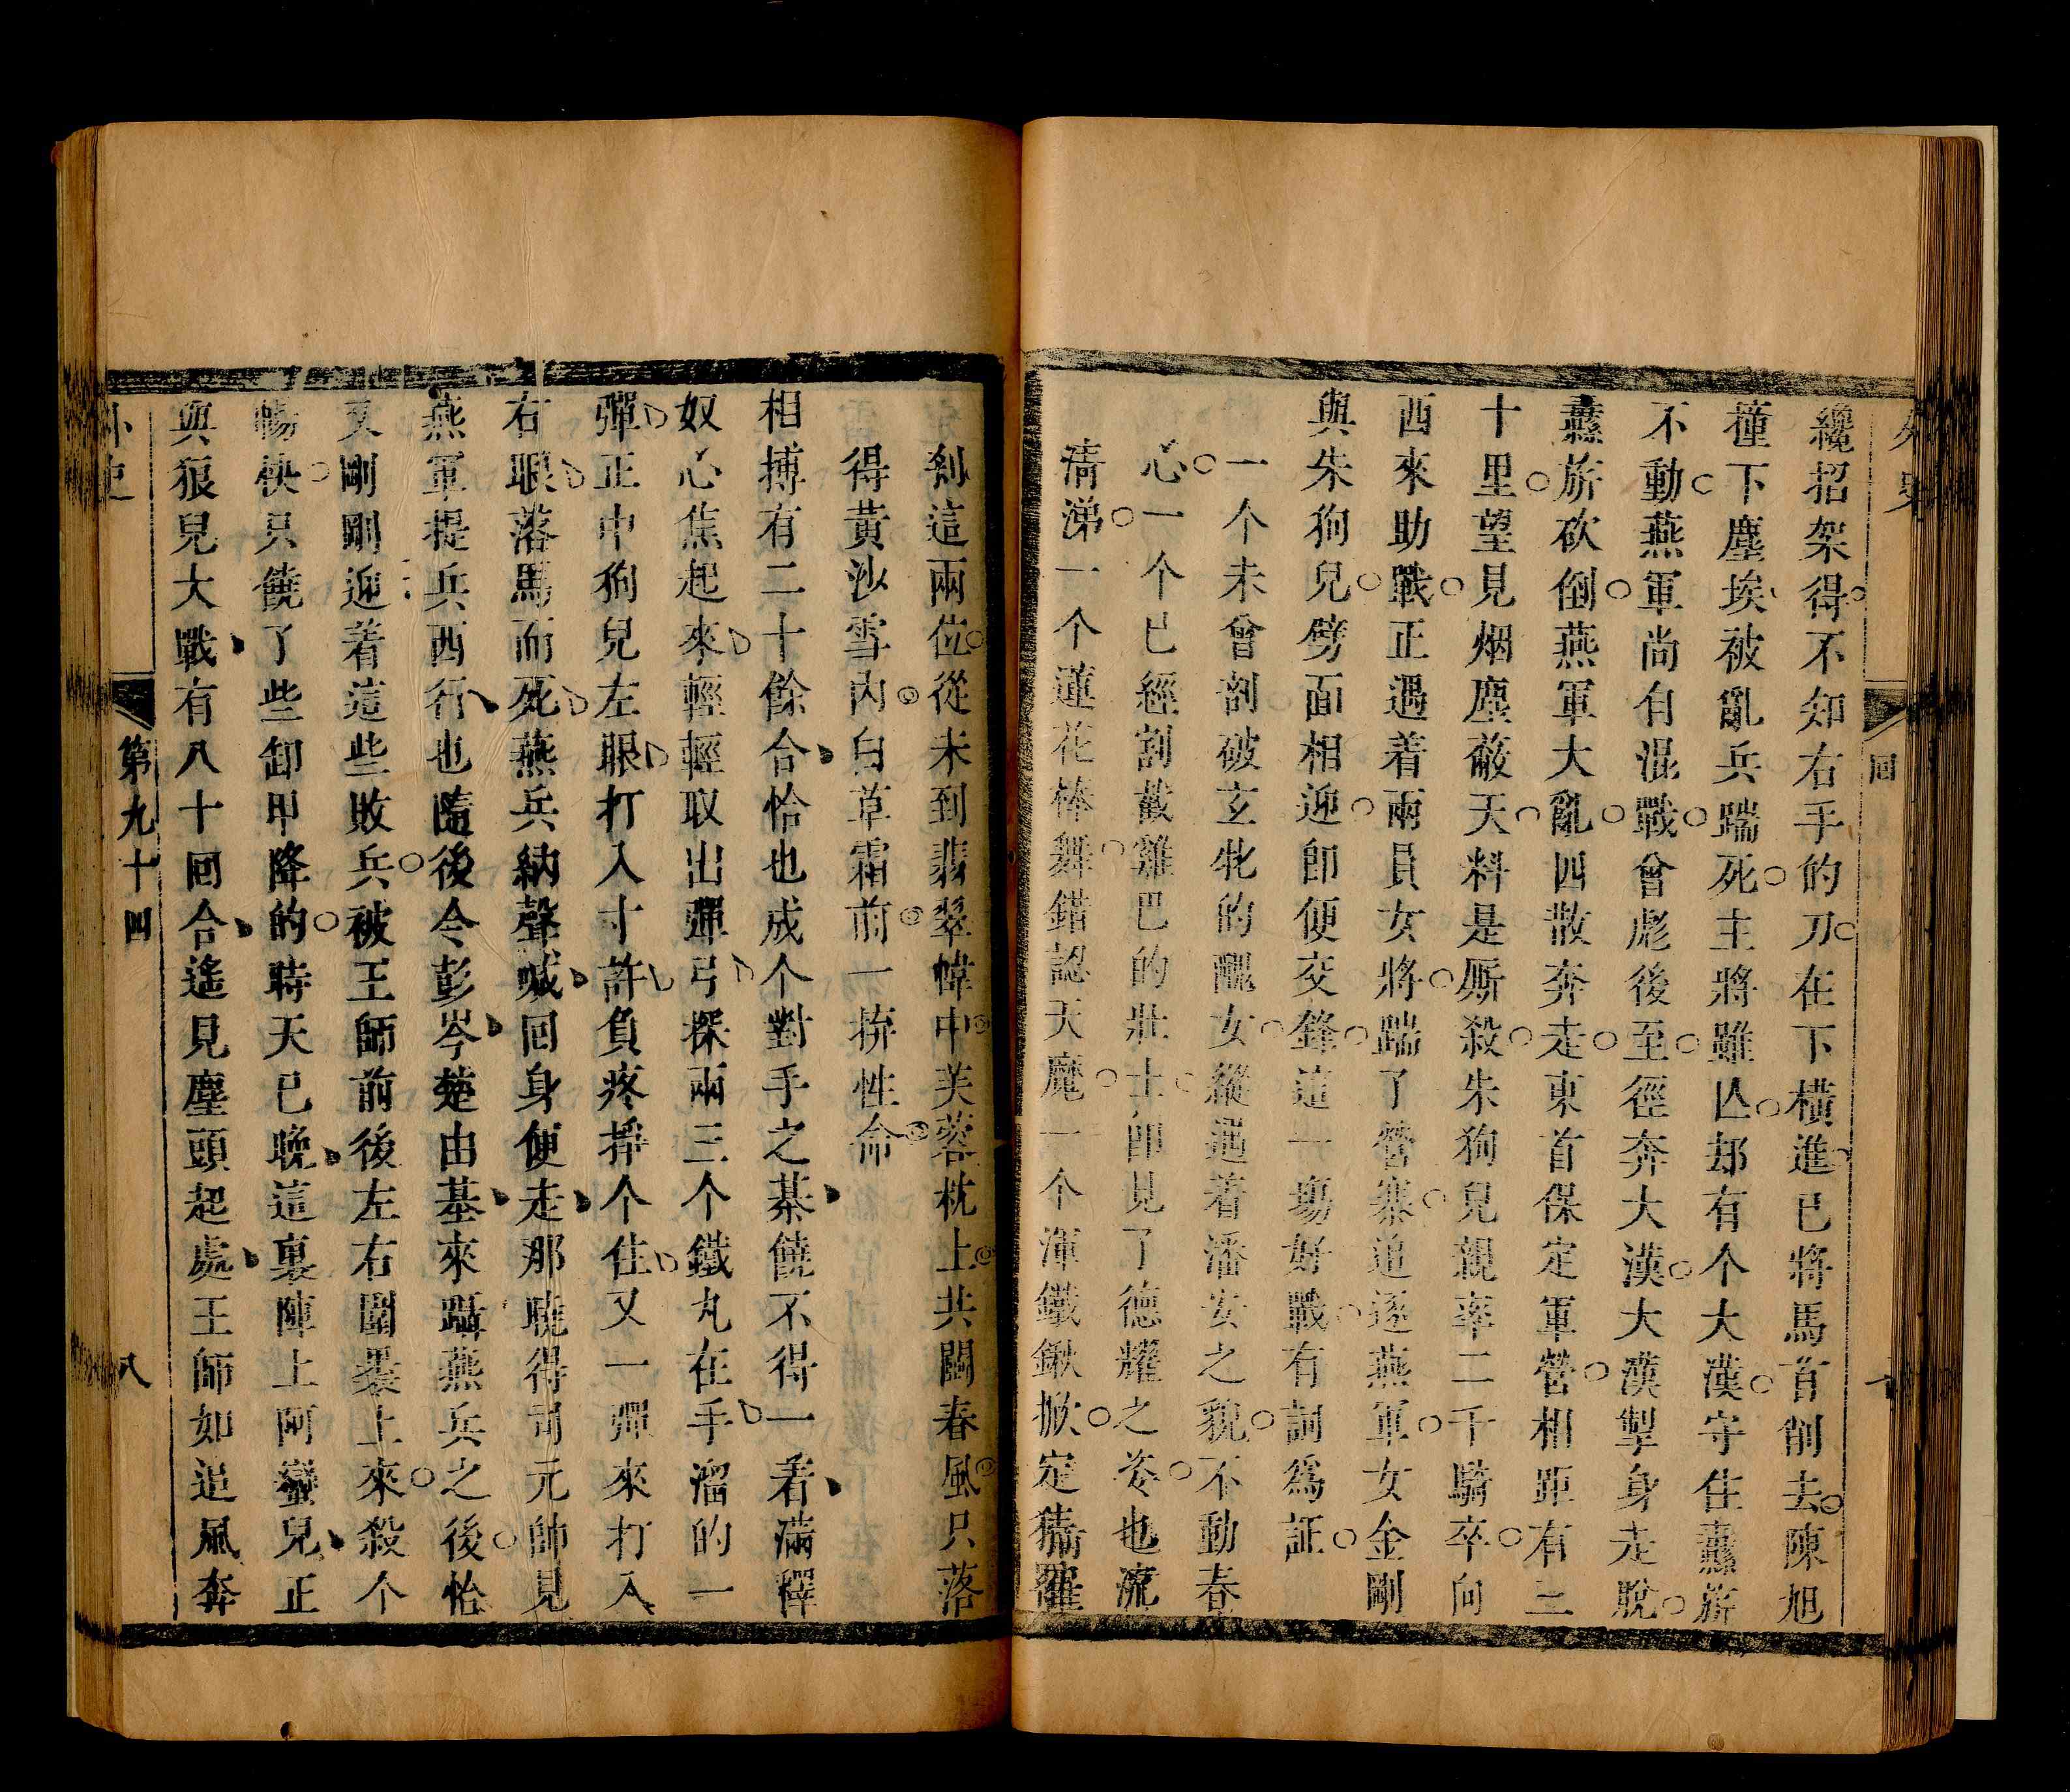 外史
回
纔招架得不知右手的刀在下橫進已將馬首削去陳旭
撞下塵埃被亂兵踹死主將雖亾却有个大漢守住纛旂
不動燕軍尚自混戰曾彪後至徑奔大漢大漢掣身走脫
纛旂砍倒燕軍大亂四散奔走東首保定軍營相距有三
十里望見烟塵蔽天料是厮殺朱狗兒親率二千騎卒向
西來助戰正遇着兩員女將踹了營寨追逐燕軍女金剛
與朱狗兒劈面相迎卽便交鋒這一塲好戰有詞爲証
一个未曾剖破玄牝的醜女縱遇着潘安之貌不動春
心一个已經割截雞巴的壯士卽見了德耀之姿也流
淸涕一个蓮花棒舞錯認天魔一个渾鐵鍬掀定猜羅
刹這兩位從未到翡翠幃中芙蓉枕上共鬭春風只落
得黃沙雪內白草霜前一拚性命
相搏有二十餘合恰也成个對手之棊饒不得一着滿釋
奴心焦起來輕輕取出彈弓探兩三个鐵丸在手溜的一
彈正中狗兒左眼打入寸許負疼掙个住又一彈來打入
右眼落馬而死燕兵納聲喊回身便走那曉得司元帥見
燕軍提兵西行也隨後令彭岑楚由基來躡燕兵之後恰
又剛剛迎着這些敗兵被王師前後左右圍裹上來殺个
暢快只饒了些卸甲降的時天已晚這裏陣上阿蠻兒正
與狼兒大戰有八十回合遙見塵頭起處王師如追風奔
外史
第九十四
八